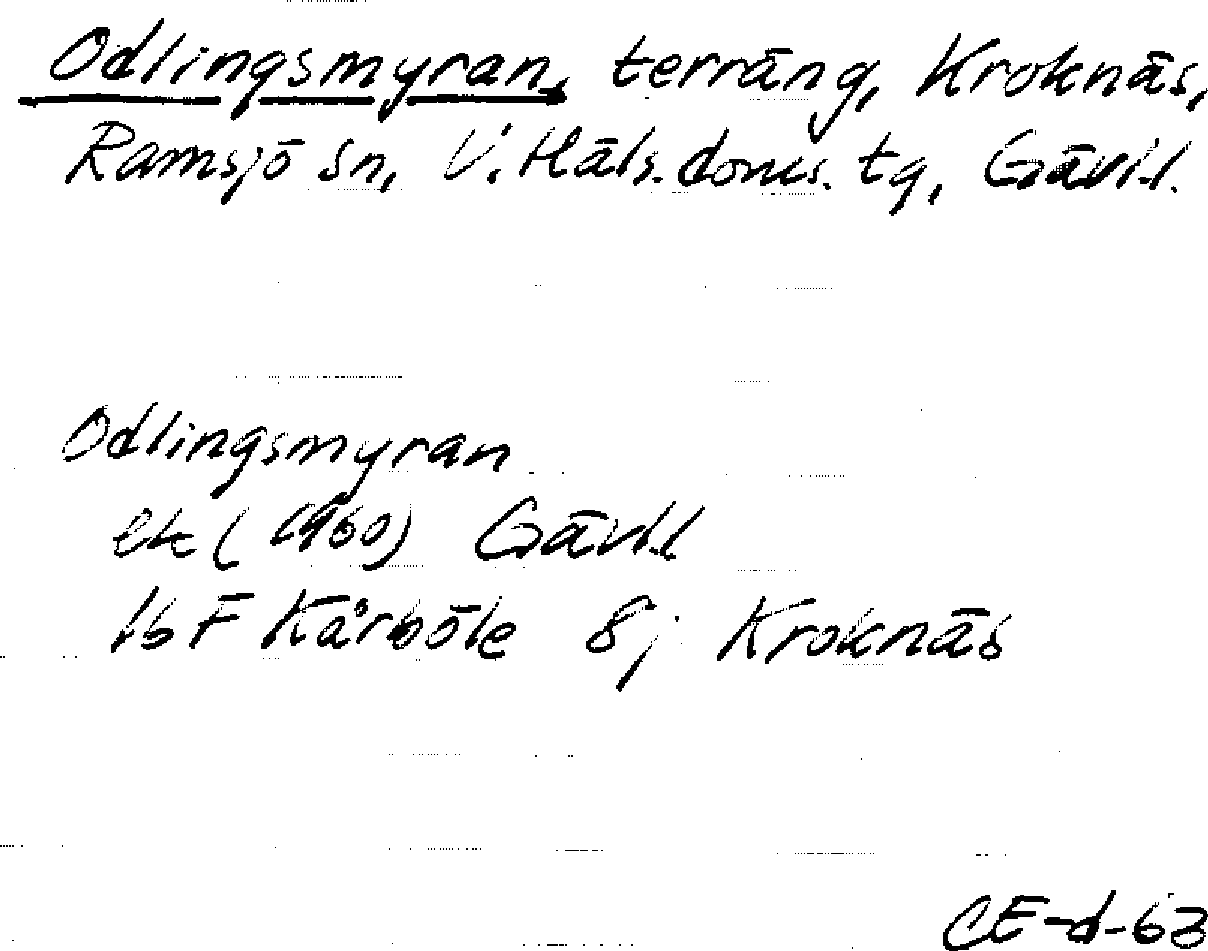 Odlingsmyran, terräng, Kroknäs,
Ramsjö sn, V. Häls. doms. tg, Gävl.l.
Odlingsmyran
ek (1960) Gävl.l
16 F Kårböle 8j Kroknäs
CE-d-63